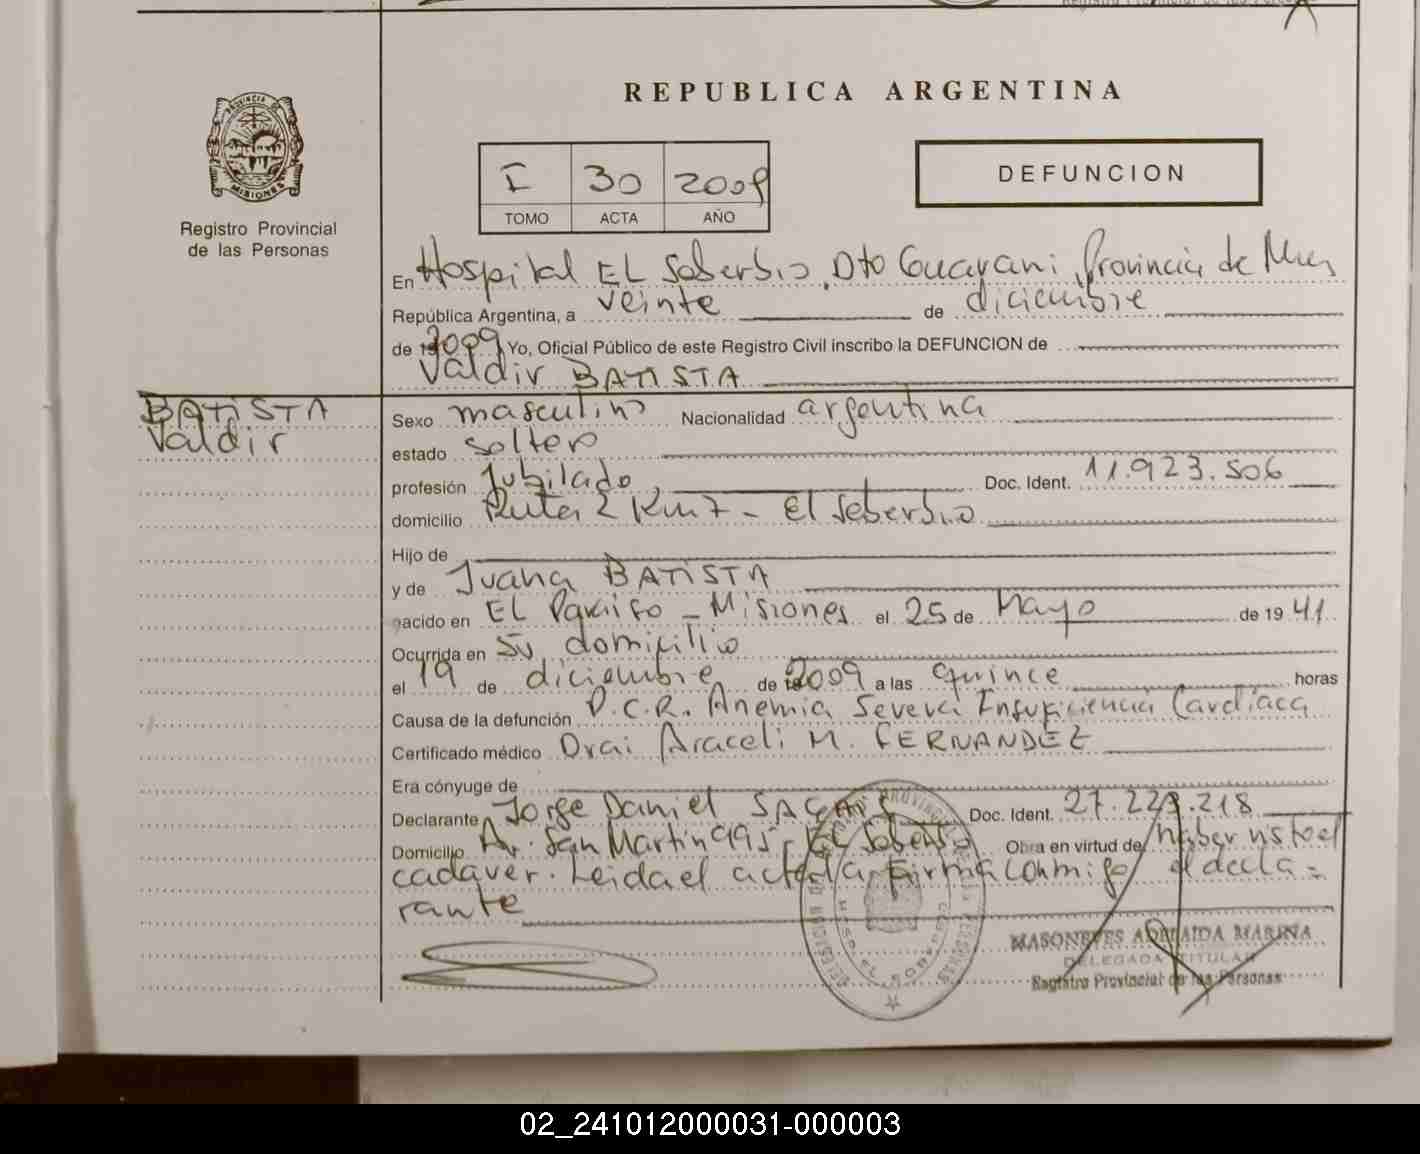 REPUBLICA ARGENTINA
PROVINCIA DE
MISIONES
Registro Provincial
de las Personas
I 30 2009
TOMO ACTA AÑO
DEFUNCION
En Hospital EL Soberbio, Dto Guarani, Provincia de Mnes
República Argentina, a veinte de diciembre
de 2009 Yo, Oficial Público de este Registro Civil inscribo la DEFUNCION de
Valdir BATISTA
BATISTA
Valdir
Sexo masculino Nacionalidad argentina
estado soltero
profesión Jubilado Doc. Ident. 11.923.506
domicilio Ruta 2 Km 7 - El Soberbio
Hijo de
y de Juana BATISTA
nacido en EL Paraiso - Misiones el 25 de Mayo de 1941
Ocurrida en su domicilio
el 19 de diciembre de 2009 a las quince horas
Causa de la defunción P.C.R. Anemia Severa Insuficiencia Cardíaca
Certificado médico Dra: Araceli M. FERNANDEZ
Era cónyuge de
Declarante Jorge Daniel Doc. Ident. 27.229.218
Domicilio Av. San Martin 995 - EL Soberbio Obra en virtud de haber visto el
cadaver. Leida el acta la firma conmigo el decla=
rante
MASONEVES ADELAIDA MARINA
DELEGADA TITULAR
Registro Provincial de las Personas
02_241012000031-000003